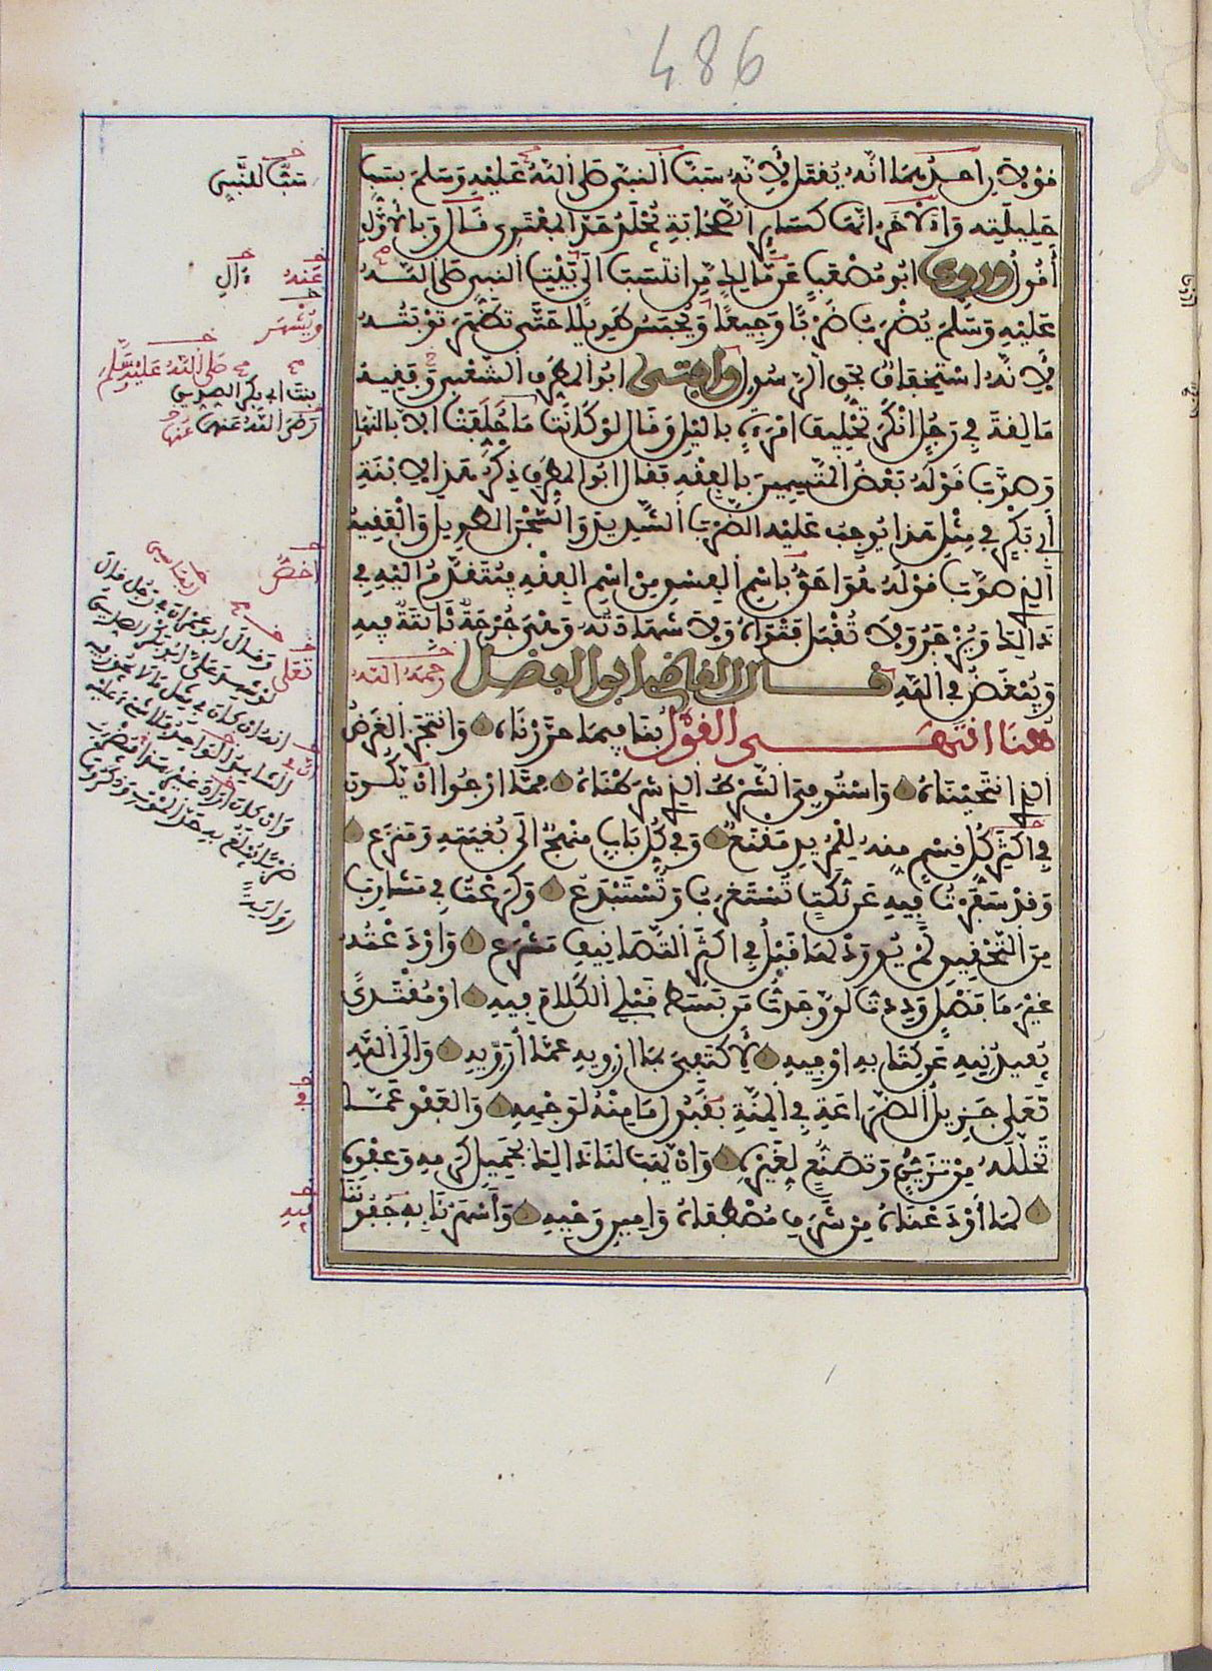 486
قولان احدهما انه يقتل لأنه سب النبي صلى الله عليه وسلم بسب
حليلته والاخر انها كسائر الصحابة يجلد حد المفتري قال وبالأول
أقول وروى ابو مصعب عن مالك من انتسب الى بيت النبي صلى الله
عليه وسلم يضرب ضربا وجيعا ويحبس طويلا حتى تظهر توبته
لأنه استخفاف بحق الرسول وافتى ابو المطرف الشعبي فقيه
مالقة في رجل انكر تحليف امرأة بالليل وقال لو كانت ما حلفت الا بالنهار
وصوب قوله بعض المتسمين بالفقه فقال ابو المطرف ذكر هذا لابنة
أبي بكر في مثل هذا يوجب عليه الضرب الشديد والسجن الطويل والفقيه
الذي صوب قوله هو احق باسم الفسق من اسم الفقه فيتقدم اليه في
ذالك ويزجر ولا تقبل فتواه ولا شهادته وهي جرحة ثابتة فيه
ويبغض في الله قال القاضي ابو الفضل رحمه الله
هنا انتهى القول بنا فيما حررناه وانتجز الغرض
الذي انتحيناه واستوفي الشرط الذي شرطناه مما ارجوا ان يكون
في اكثر كل قسم منه للمريد مقنع وفي كل باب منهج الى بغيته ومنزع
وقد سفرت فيه عن نكت تستغرب وتستبدع وكرعت في مشارب
من التحقيق لم يورد لها قبل في اكثر التصانيف مشرع واودعته
غير ما فصل وددت لو وجدت من بسط قبلي الكلام فيه او مقتدى
يفيدنيه عن كتابه او فيه لأكتفي بما ارويه عما أرويه والى الله
تعلى جزيل الضراعة في المنة بقبول ما منه لوجهه والعفو عما
تخلله من تزين وتصنع لغيره وان يهب لنا ذالك بجميل كرمه وعفوه
لما أودعناه من شرف مصطفاه وامين وحيه وأسهرنا به جفوننا
سب النبي
عنه
ويشهر
صلى الله عليه وسلم
بنت ابي بكر الصديق
رضي الله عنهما
اخص
تعلى
وقال ابو عمران في رجل قال
لو شهد علي ابو بكر الصديق
انه ان كان في مثل ما لا يجوز فيه
الشاهد الواحد فلا شيء عليه
وان كان اراد غير هذا فيضرب
ضربا يبلغ به حد الموت وذكروها
رواية
في
فيه